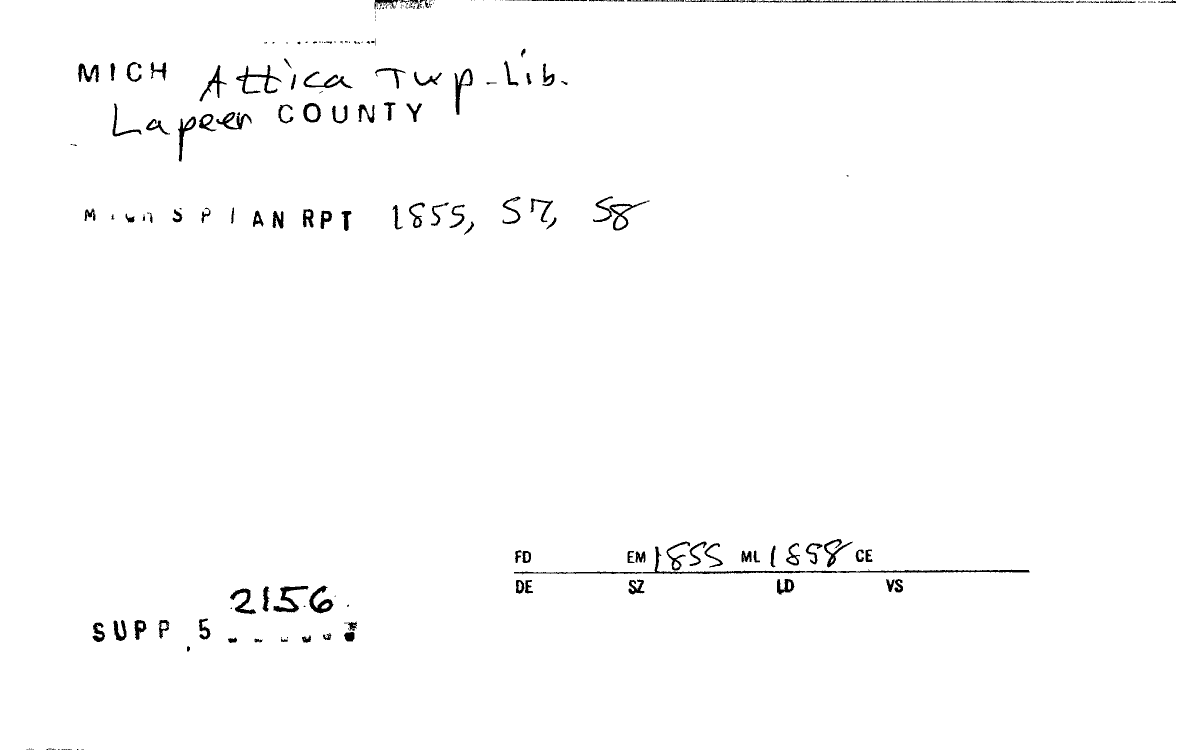 MICH Attica Twp-Lib.
Lapeer COUNTY
SPI AN RPT 1855, 57, 58
FD EM 1855 ML 1858 CE
DE SZ LD VS
2156
SUPP 5